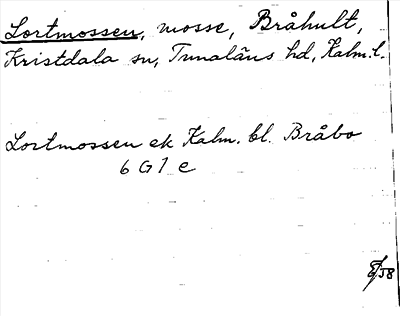 Lortmossen, mosse, Bråhult,
Kristdala sn, Tunaläns hd, Kalm. l.
Lortmossen ek Kalm. bl. Bråbo
6 G 1 e